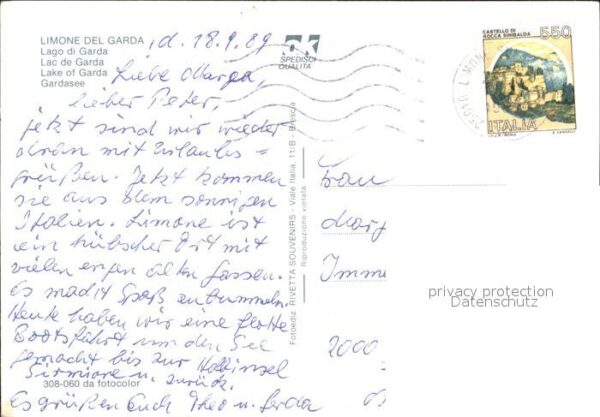 LIMONE DEL GARDA
Lago di Garda
Lac de Garda
Lake of Garda
Gardasee
, d. 18.9.89
SPEDISCI QUALITA
CASTELLO DI
ROCCA SINIBALDA
550
ITALIA
Liebe Marga,
lieber Peter,
jetzt sind wir wieder
dran mit Urlaubs=
grüßen. Jetzt kommen
sie aus dem sonnigen
Italien. Limone ist
ein hübscher Ort mit
vielen engen alten Gassen.
Es macht Spaß
Heute haben wir eine flotte
Bootsfahrt um den See
gemacht bis zur Halbinsel
Sirmione u. zurück.
Es grüßen Euch Theo u. Gerda
308-060 da fotocolor
Fotoediz. RIVETTA SOUVENIRS - Viale Italia, 11/B - Brescia
Riproduzione vietata
Frau
Marg
Imme
2000
privacy protection
Datenschutz